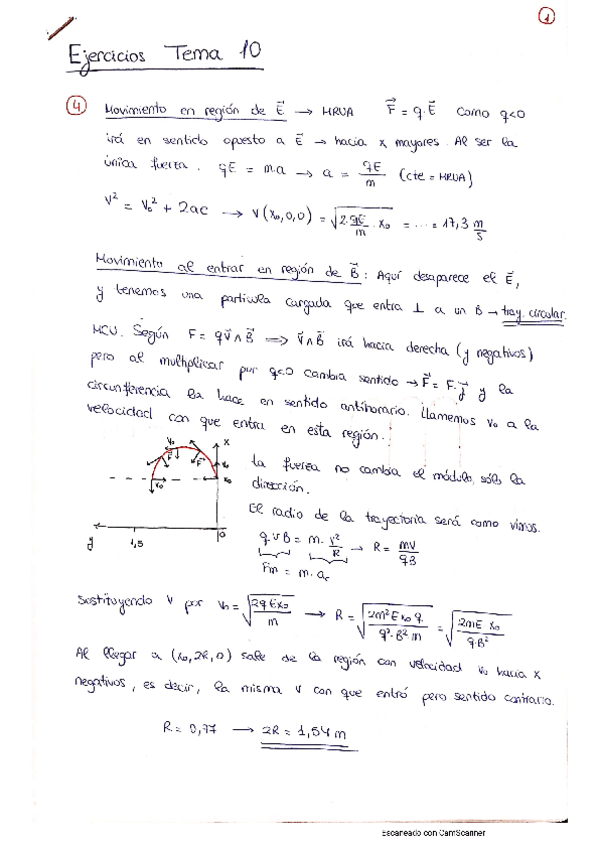 1
Ejercicios Tema 10
4 Movimiento en región de E⃗ → MRUA F⃗ = q·E⃗ Como q<0
irá en sentido opuesto a E⃗ → hacia x mayores. Al ser la
única fuerza. qE = m·a → a = qE/m (cte = MRUA)
V² = V₀² + 2ae → V(x₀,0,0) = √(2·qE/m · x₀) = ... = 17,3 m/s
Movimiento al entrar en región de B⃗: Aquí desaparece el E⃗,
y tenemos una partícula cargada que entra ⊥ a un B → tray. circular.
MCU. Según F = qV⃗∧B⃗ ⟹ V⃗∧B⃗ irá hacia derecha (y negativos)
pero al multiplicar por q<0 cambia sentido → F⃗ = F·j⃗ y la
circunferencia la hace en sentido antihorario. Llamemos v₀ a la
velocidad con que entra en esta región.
x
v₀
F⃗
F⃗
v₀
x₀
v₀
y
1,5
0
La fuerza no cambia el módulo, sólo la
dirección.
El radio de la trayectoria será como vimos.
q·v·B = m·v²/R → R = mv/qB
Fm = m·ac
Sustituyendo v por v₀ = √(2qEx₀/m) → R = √(2m²Ex₀q/q²·B²m) = √(2mEx₀/q·B²)
Al llegar a (x₀,2R,0) sale de la región con velocidad v₀ hacia x
negativos, es decir, la misma v con que entró pero sentido contrario.
R = 0,77 → 2R = 1,54 m
Escaneado con CamScanner